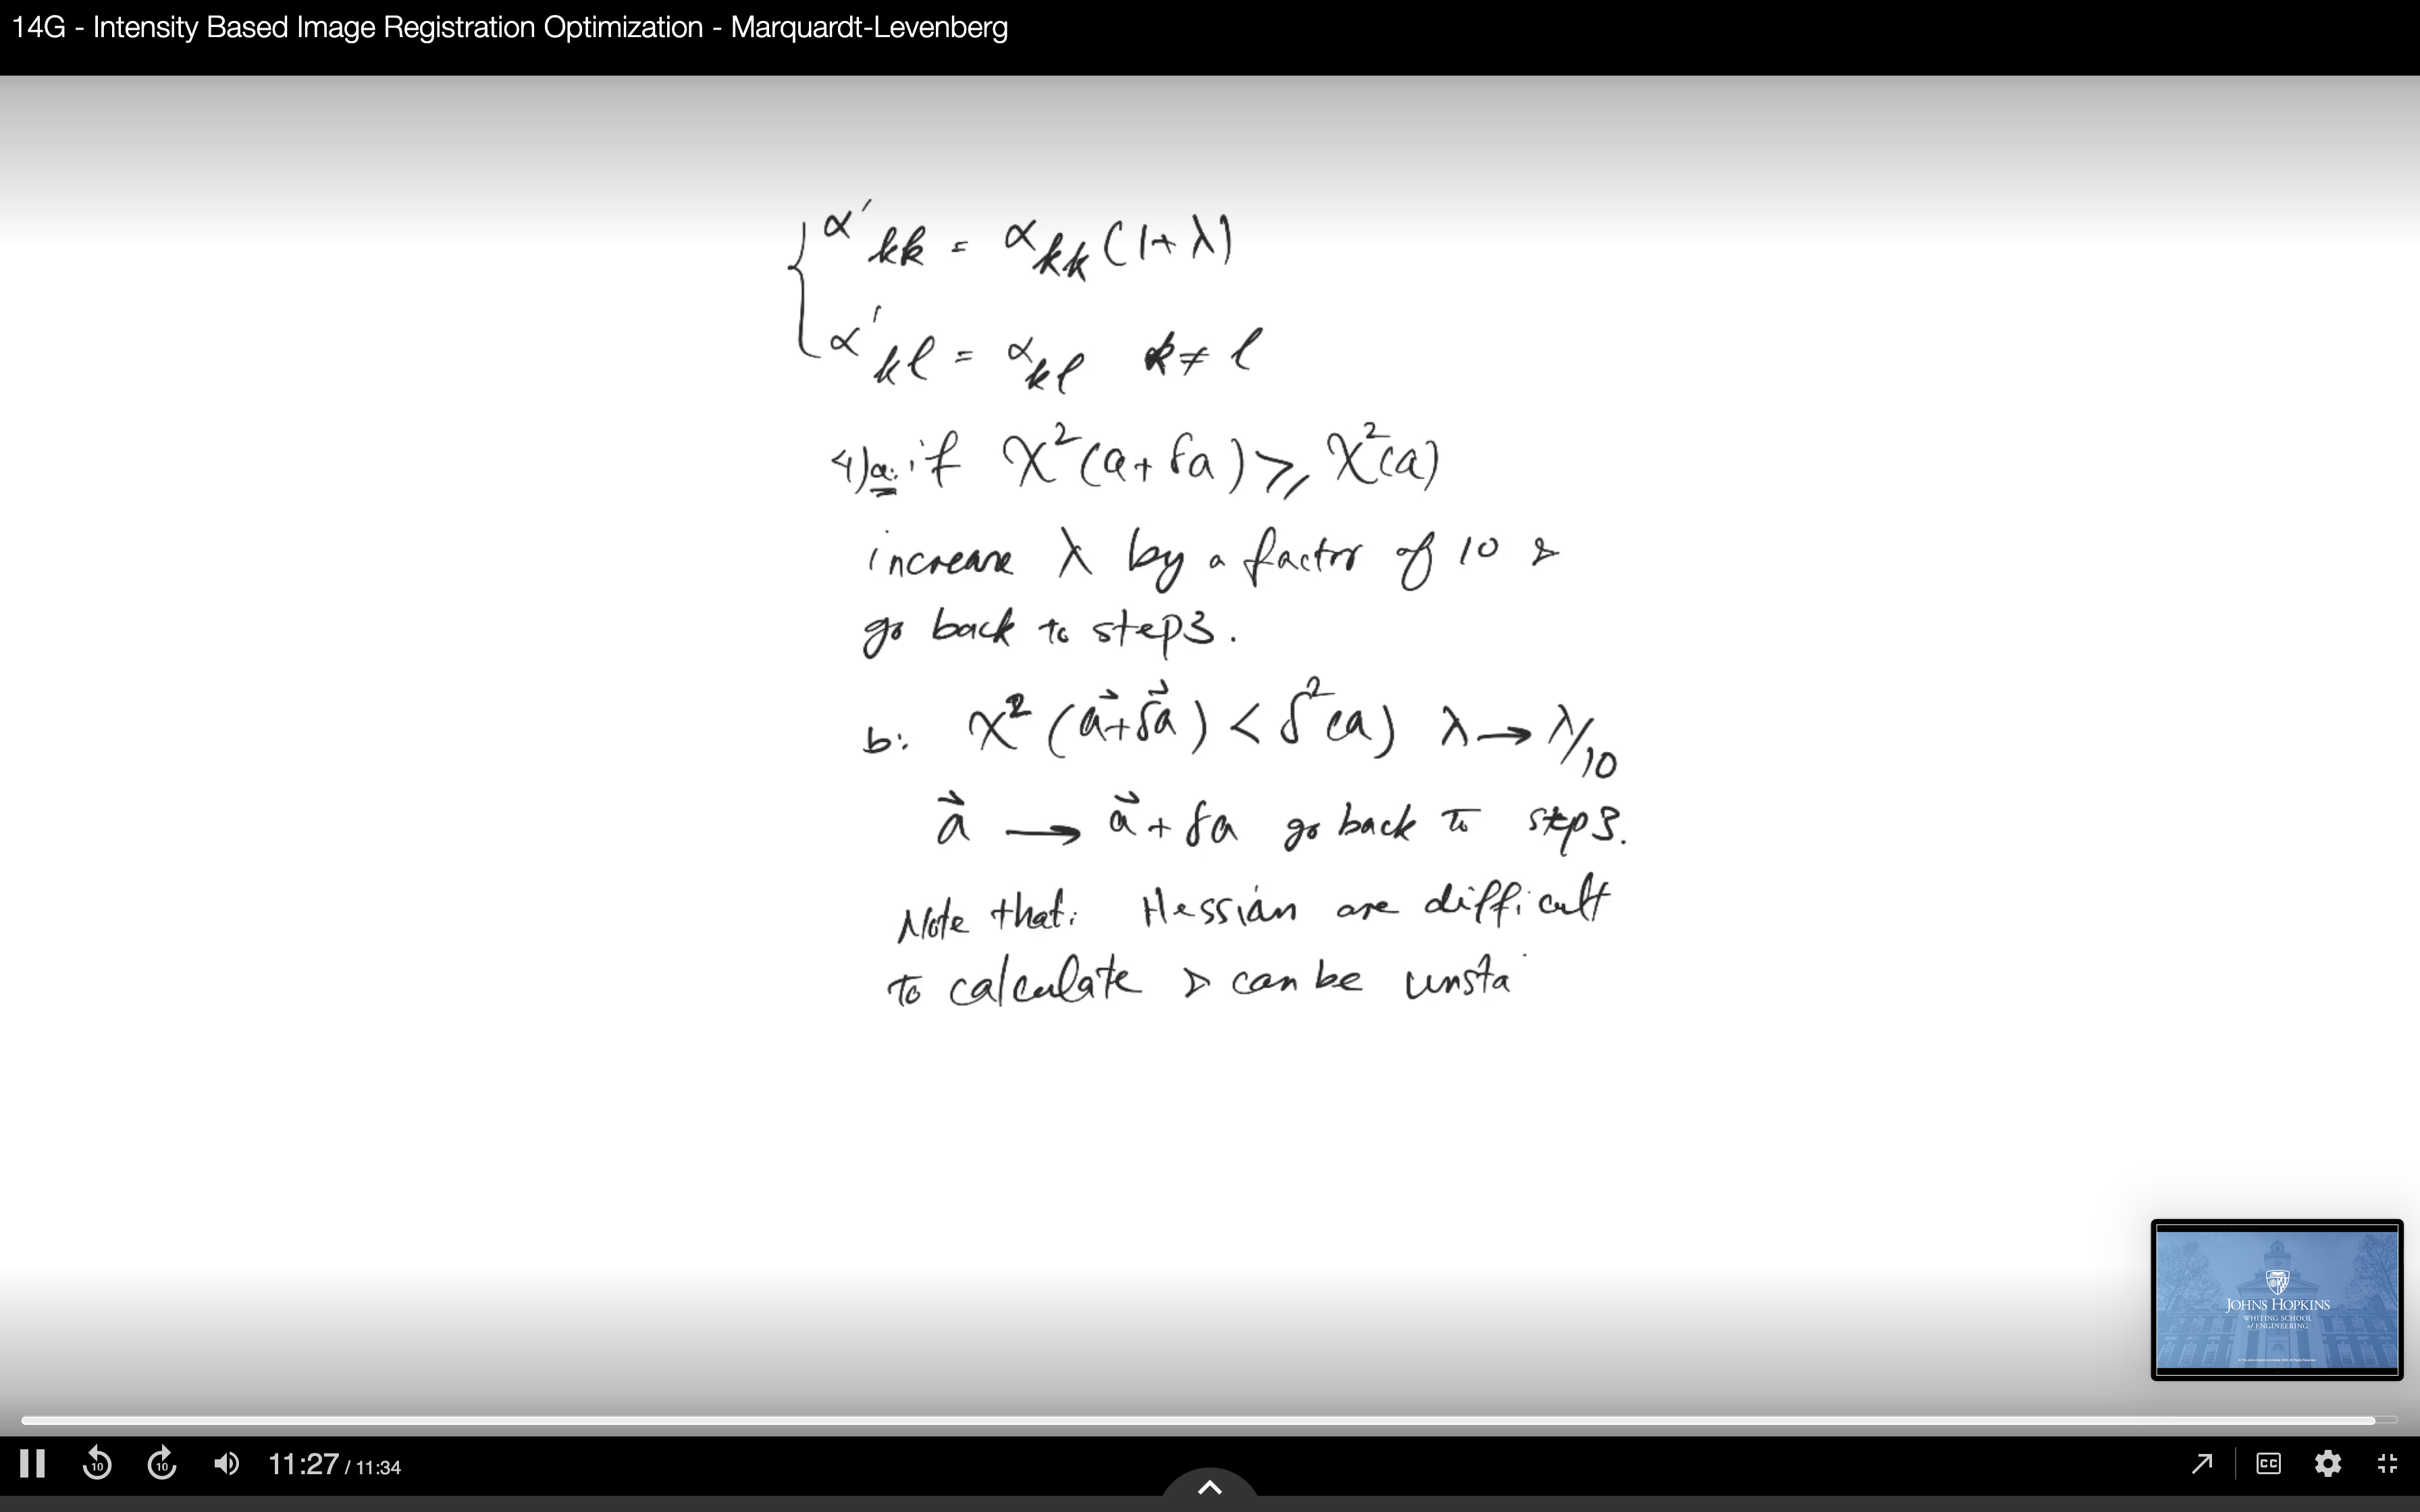 14G - Intensity Based Image Registration Optimization - Marquardt-Levenberg
α'kk = αkk (1+λ)
α'kl = αkl k≠l
4) a: if χ²(a+δa) ⩾ χ²(a)
increase λ by a factor of 10 &
go back to step3.
b: χ²(a⃗+δa⃗) < δ²(a) λ→λ/10
a⃗ → a⃗+δa go back to step3.
Note that: Hessian are difficult
to calculate & can be unsta
JOHNS HOPKINS
WHITING SCHOOL
of ENGINEERING
10
10
11:27 / 11:34
CC